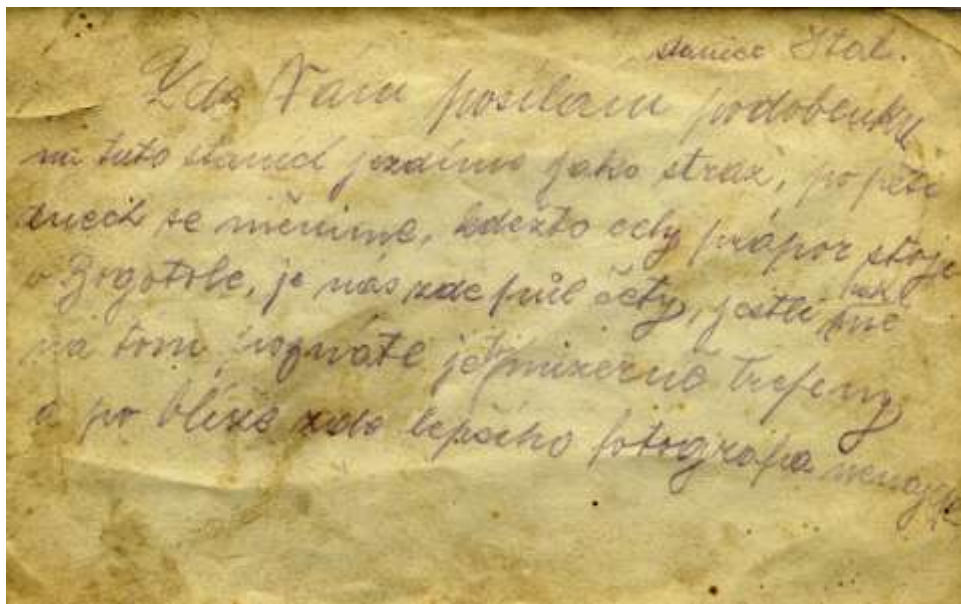 stanice Ital.
Zde Vám posilam podobenku
na tuto stanici jezdíme jako straz, po pěti
dnech se měnime, kdežto cely prapor stoji
v Bogotole, je nás zde půl čety, jestli mě
na tom poznáte je mizerně trefeny
a po bliz zde lepšího fotografa nenajde